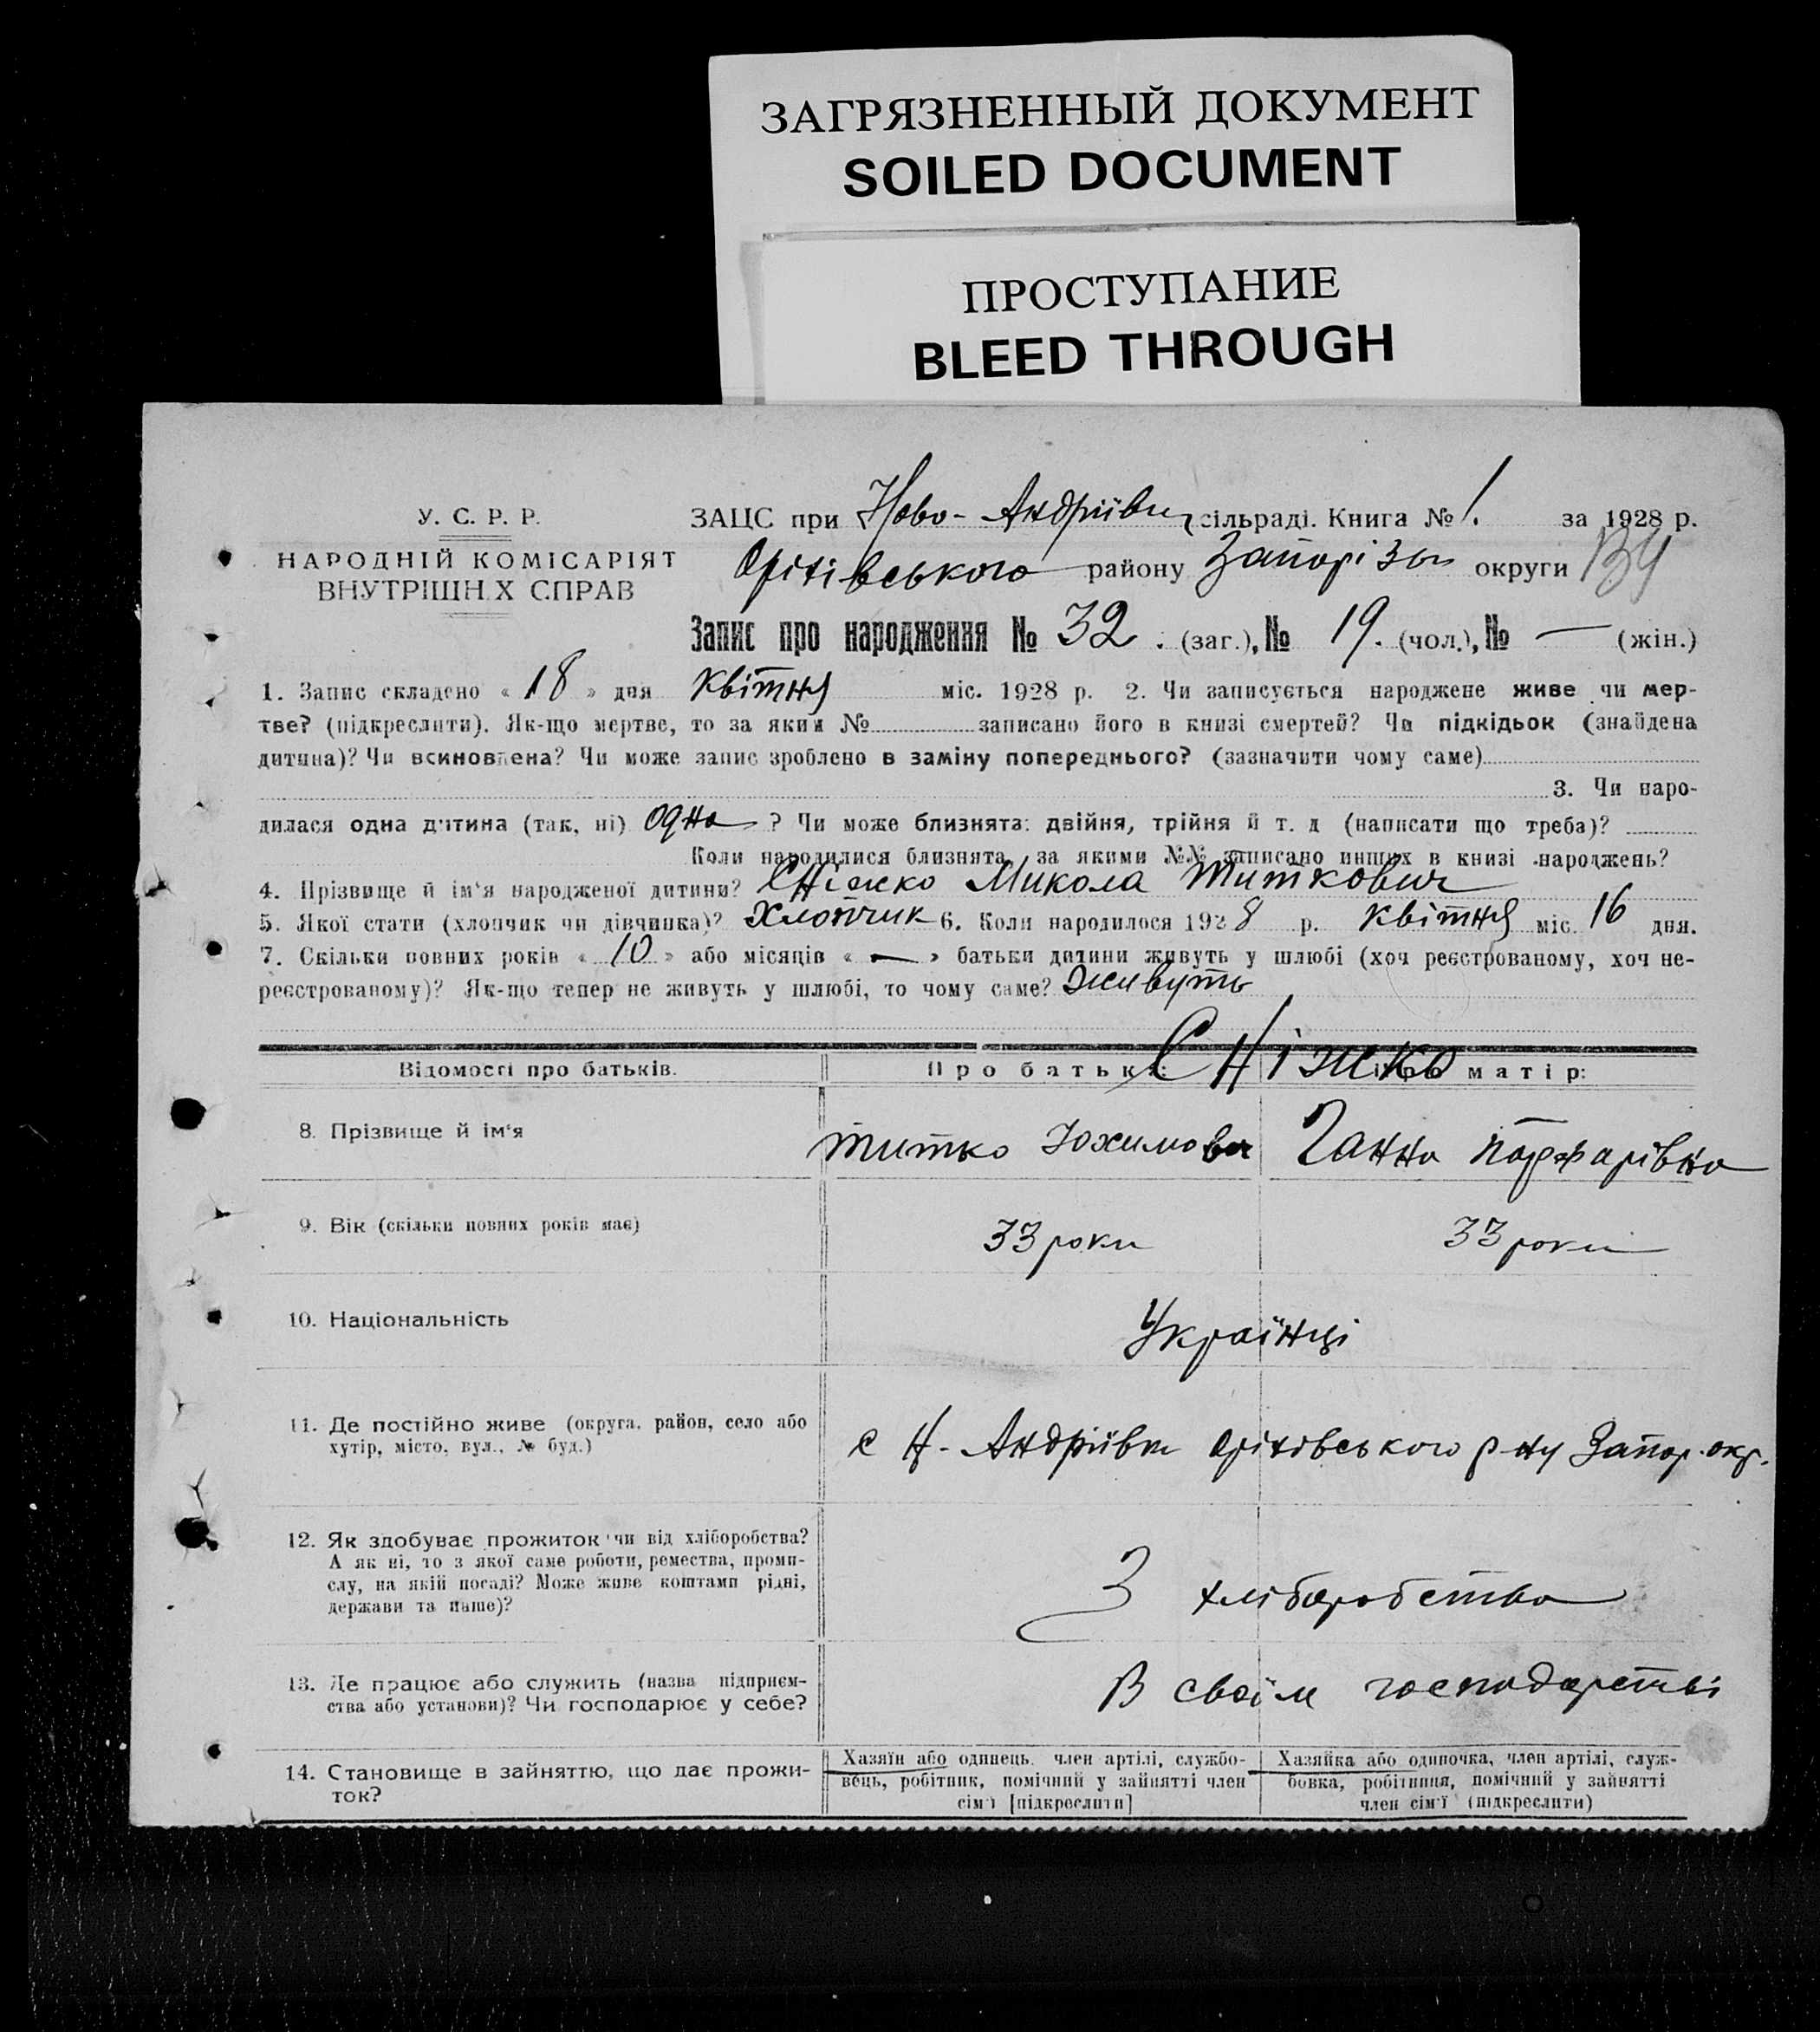 ЗАГРЯЗНЕННЫЙ ДОКУМЕНТ
SOILED DOCUMENT
ПРОСТУПАНИЕ
BLEED THROUGH
У. С. Р. Р.
НАРОДНІЙ КОМІСАРІЯТ
ВНУТРІШН.Х СПРАВ
ЗАЦС при Ново-Андріївц сільраді. Книга № 1. за 1928 р.
Оріхівського району Запорізьк округи
Запис про народження № 32. (заг.), № 19. (чол.), № — (жін.)
1. Запис складено « 18 » дня квітня міс. 1928 р. 2. Чи записується народжене живе чи мер-
тве? (підкреслити). Як-що мертве, то за яким № записано його в книзі смертей? Чи підкідьок (знайдена
дитина)? Чи всиновлена? Чи може запис зроблено в заміну попереднього? (зазначити чому саме)
3. Чи наро-
дилася одна дитина (так, ні) одна ? Чи може близнята: двійня, трійня й т. д (написати що треба)?
Коли народилися близнята, за якими №№ записано инших в книзі народжень?
4. Прізвище й ім'я народженої дитини? Сніжко Микола Титкович
5. Якої стати (хлопчик чи дівчинка)? Хлопчик 6. Коли народилося 1928 р. квітня міс. 16 дня.
7. Скільки повних років « 10 » або місяців « — » батьки дитини живуть у шлюбі (хоч реєстрованому, хоч не-
реєстрованому)? Як-що тепер не живуть у шлюбі, то чому саме? Живуть
Сніжко
Відомості про батьків. Про батька: матір:
8. Прізвище й ім'я Титко Юхимович Ганна
9. Вік (скільки повних років має) 33 роки 33 роки
10. Національність Українці
11. Де постійно живе (округа, район, село або
хутір, місто, вул., № буд.)
с Н-Андріївки Оріхівського р-ну Запор. окр.
12. Як здобуває прожиток чи від хліборобства?
А як ні, то з якої саме роботи, ремества, проми-
слу, на якій посаді? Може живе коштами рідні,
держави та инше)?
З хліборобства
13. Де працює або служить (назва підприєм-
ства або установи)? Чи господарює у себе?
В своїм господарстві
14. Становище в зайняттю, що дає прожи-
ток?
Хазяїн або одинець, член артілі, службо-
вець, робітник, помічний у зайнятті член
сім'ї [підкреслити]
Хазяйка або одиночка, член артілі, служ-
бовка, робітниця, помічний у зайнятті
член сім'ї (підкреслити)